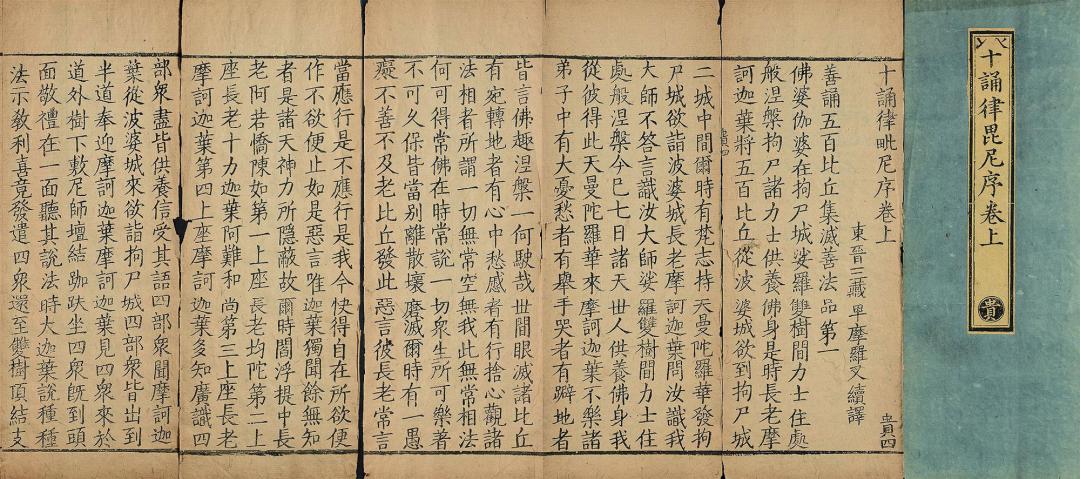 十誦律毘尼序卷上
貴
十誦律毗尼序卷上 貴四
東晉三藏卑摩羅叉續譯
善誦五百比丘集滅善法品第一
佛婆伽婆在拘尸城娑羅雙樹間力士住處
般涅槃拘尸諸力士供養佛身是時長老摩
訶迦葉將五百比丘從波婆城欲到拘尸城
二城中間爾時有梵志持天曼陀羅華發拘
尸城欲詣波婆城長老摩訶迦葉問汝識我
大師不答言識汝大師娑羅雙樹間力士住
處般涅槃今已七日諸天世人供養佛身我
從彼得此天曼陀羅華來摩訶迦葉不樂諸
弟子中有大憂愁者有舉手哭者有躃地者
皆言佛趣涅槃一何駛哉世間眼滅諸比丘
有宛轉地者有心中愁慼者有行捨心觀諸
法相者所謂一切無常空無我此無常相法
何可得常佛在時常說一切衆生所可樂著
不可久保皆當別離散壞磨滅爾時有一愚
癡不善不及老比丘發此惡言彼長老常言
當應行是不應行是我今快得自在所欲便
作不欲便止如是惡言唯迦葉獨聞餘無知
者是諸天神力所隱蔽故爾時閻浮提中長
老阿若憍陳如第一上座長老均陀第二上
座長老十力迦葉阿難和尚第三上座長老
摩訶迦葉第四上座摩訶迦葉多知廣識四
部衆盡皆供養信受其語四部衆聞摩訶迦
葉從波婆城來欲詣拘尸城四部衆皆出到
半道奉迎摩訶迦葉摩訶迦葉見四衆來於
道外樹下敷尼師壇結跏趺坐四衆旣到頭
面敬禮在一面聽其說法時大迦葉說種種
法示教利喜竟發遣四衆還至雙樹頂結支